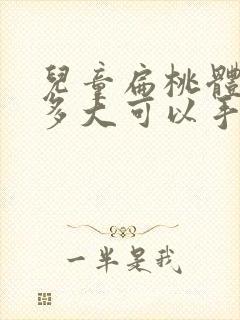 兒童扁桃體
多大可以手
一半是我